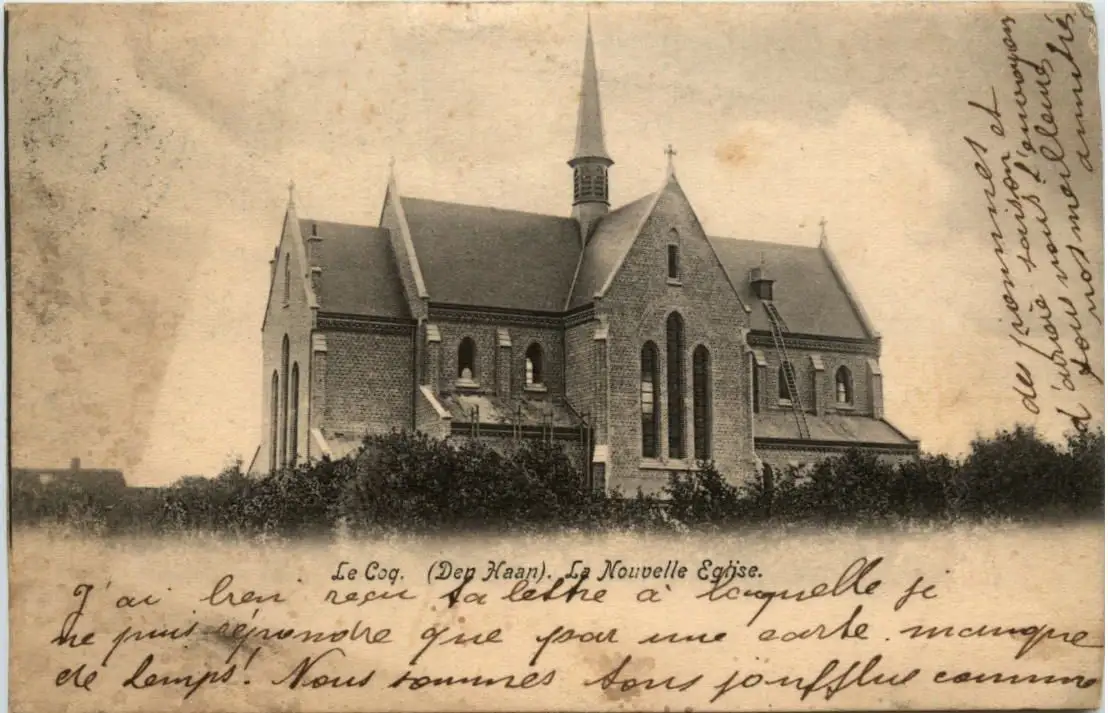 Le Coq. (Den Haan). La Nouvelle Eglise.
J'ai bien reçu ta lettre à laquelle je
ne puis répondre que par une carte. manque
de temps! Nous sommes tous joufflus comme
des pommes et
arrière saison et
tous vous t'envoyons
d'
nos meilleures
amitiés